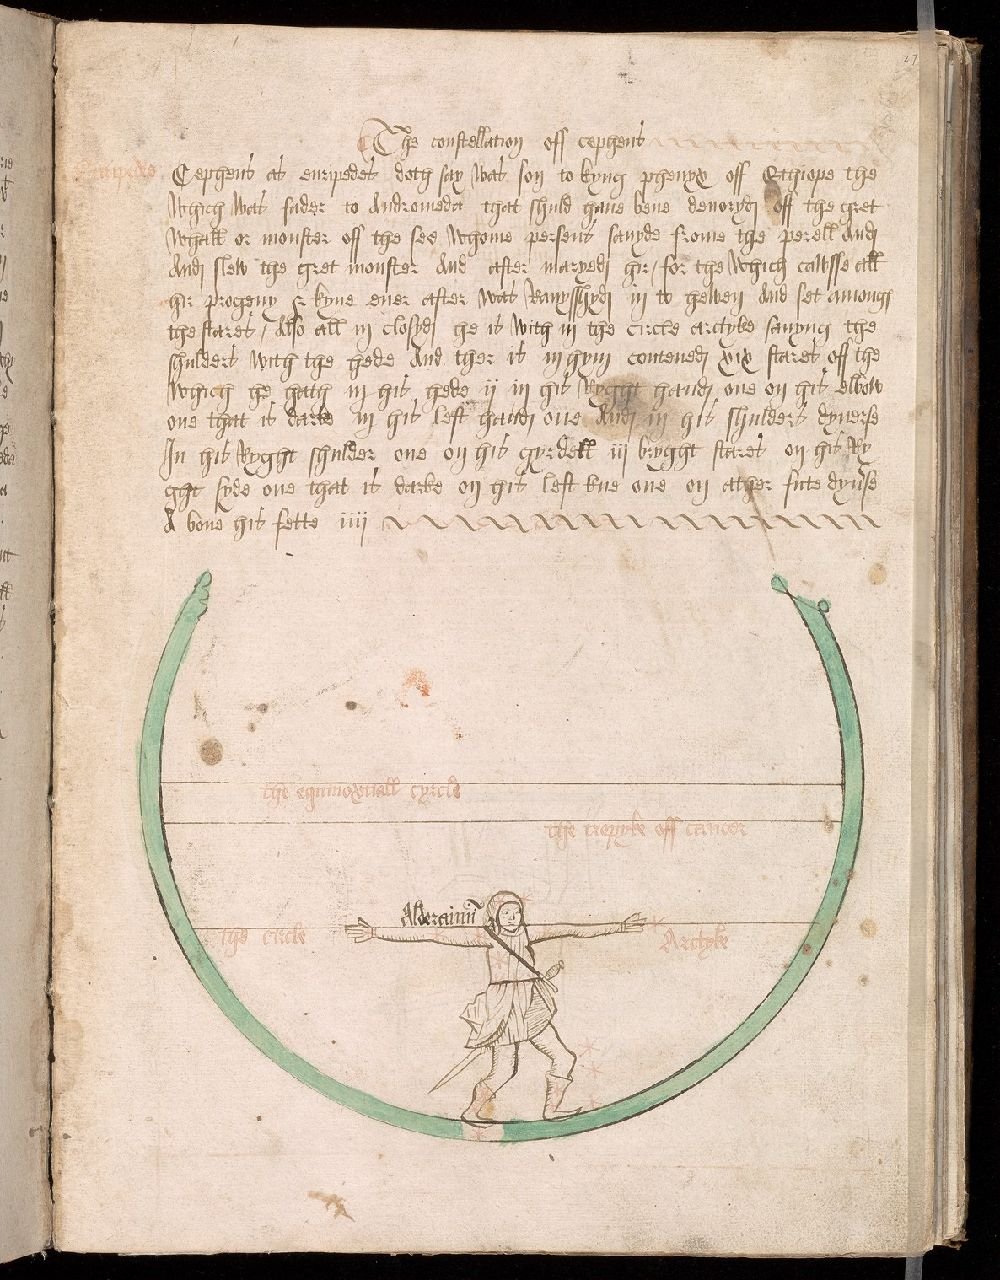 27
The constellation off cephens
Euripedes
Cephens as euripedes doth say was son to kyng phenyx off Ethiope the
Which Was fader to Andromeda that shuld haue bene devoryd off the gret
Whall or monster off the see Whome persens savyde frome the perell And
And slew the gret monster And after maryed hir / for the Which causse all
hir progeny & kyne ever after Was Ravysshyd in to heven And set amongs
the stares / Also all in closyd he is With in the circle artyke savyng the
shulders With the hede And ther is in hym contened xix stares off the
Which he hath in his hede ij in his Ryght hand one on his elbow
one that is darke in his left hand one And in his shulders dyverse
In his Ryght shulder one on his gyrdell iij bryght stares on his Ry
ght syde one that is darke on his left kne one on ather fute dyuerse
A bone his fette iiij
the equinoxciall cyrcle
the tropyke off cancer
Alderainim
the circle
Arctyke